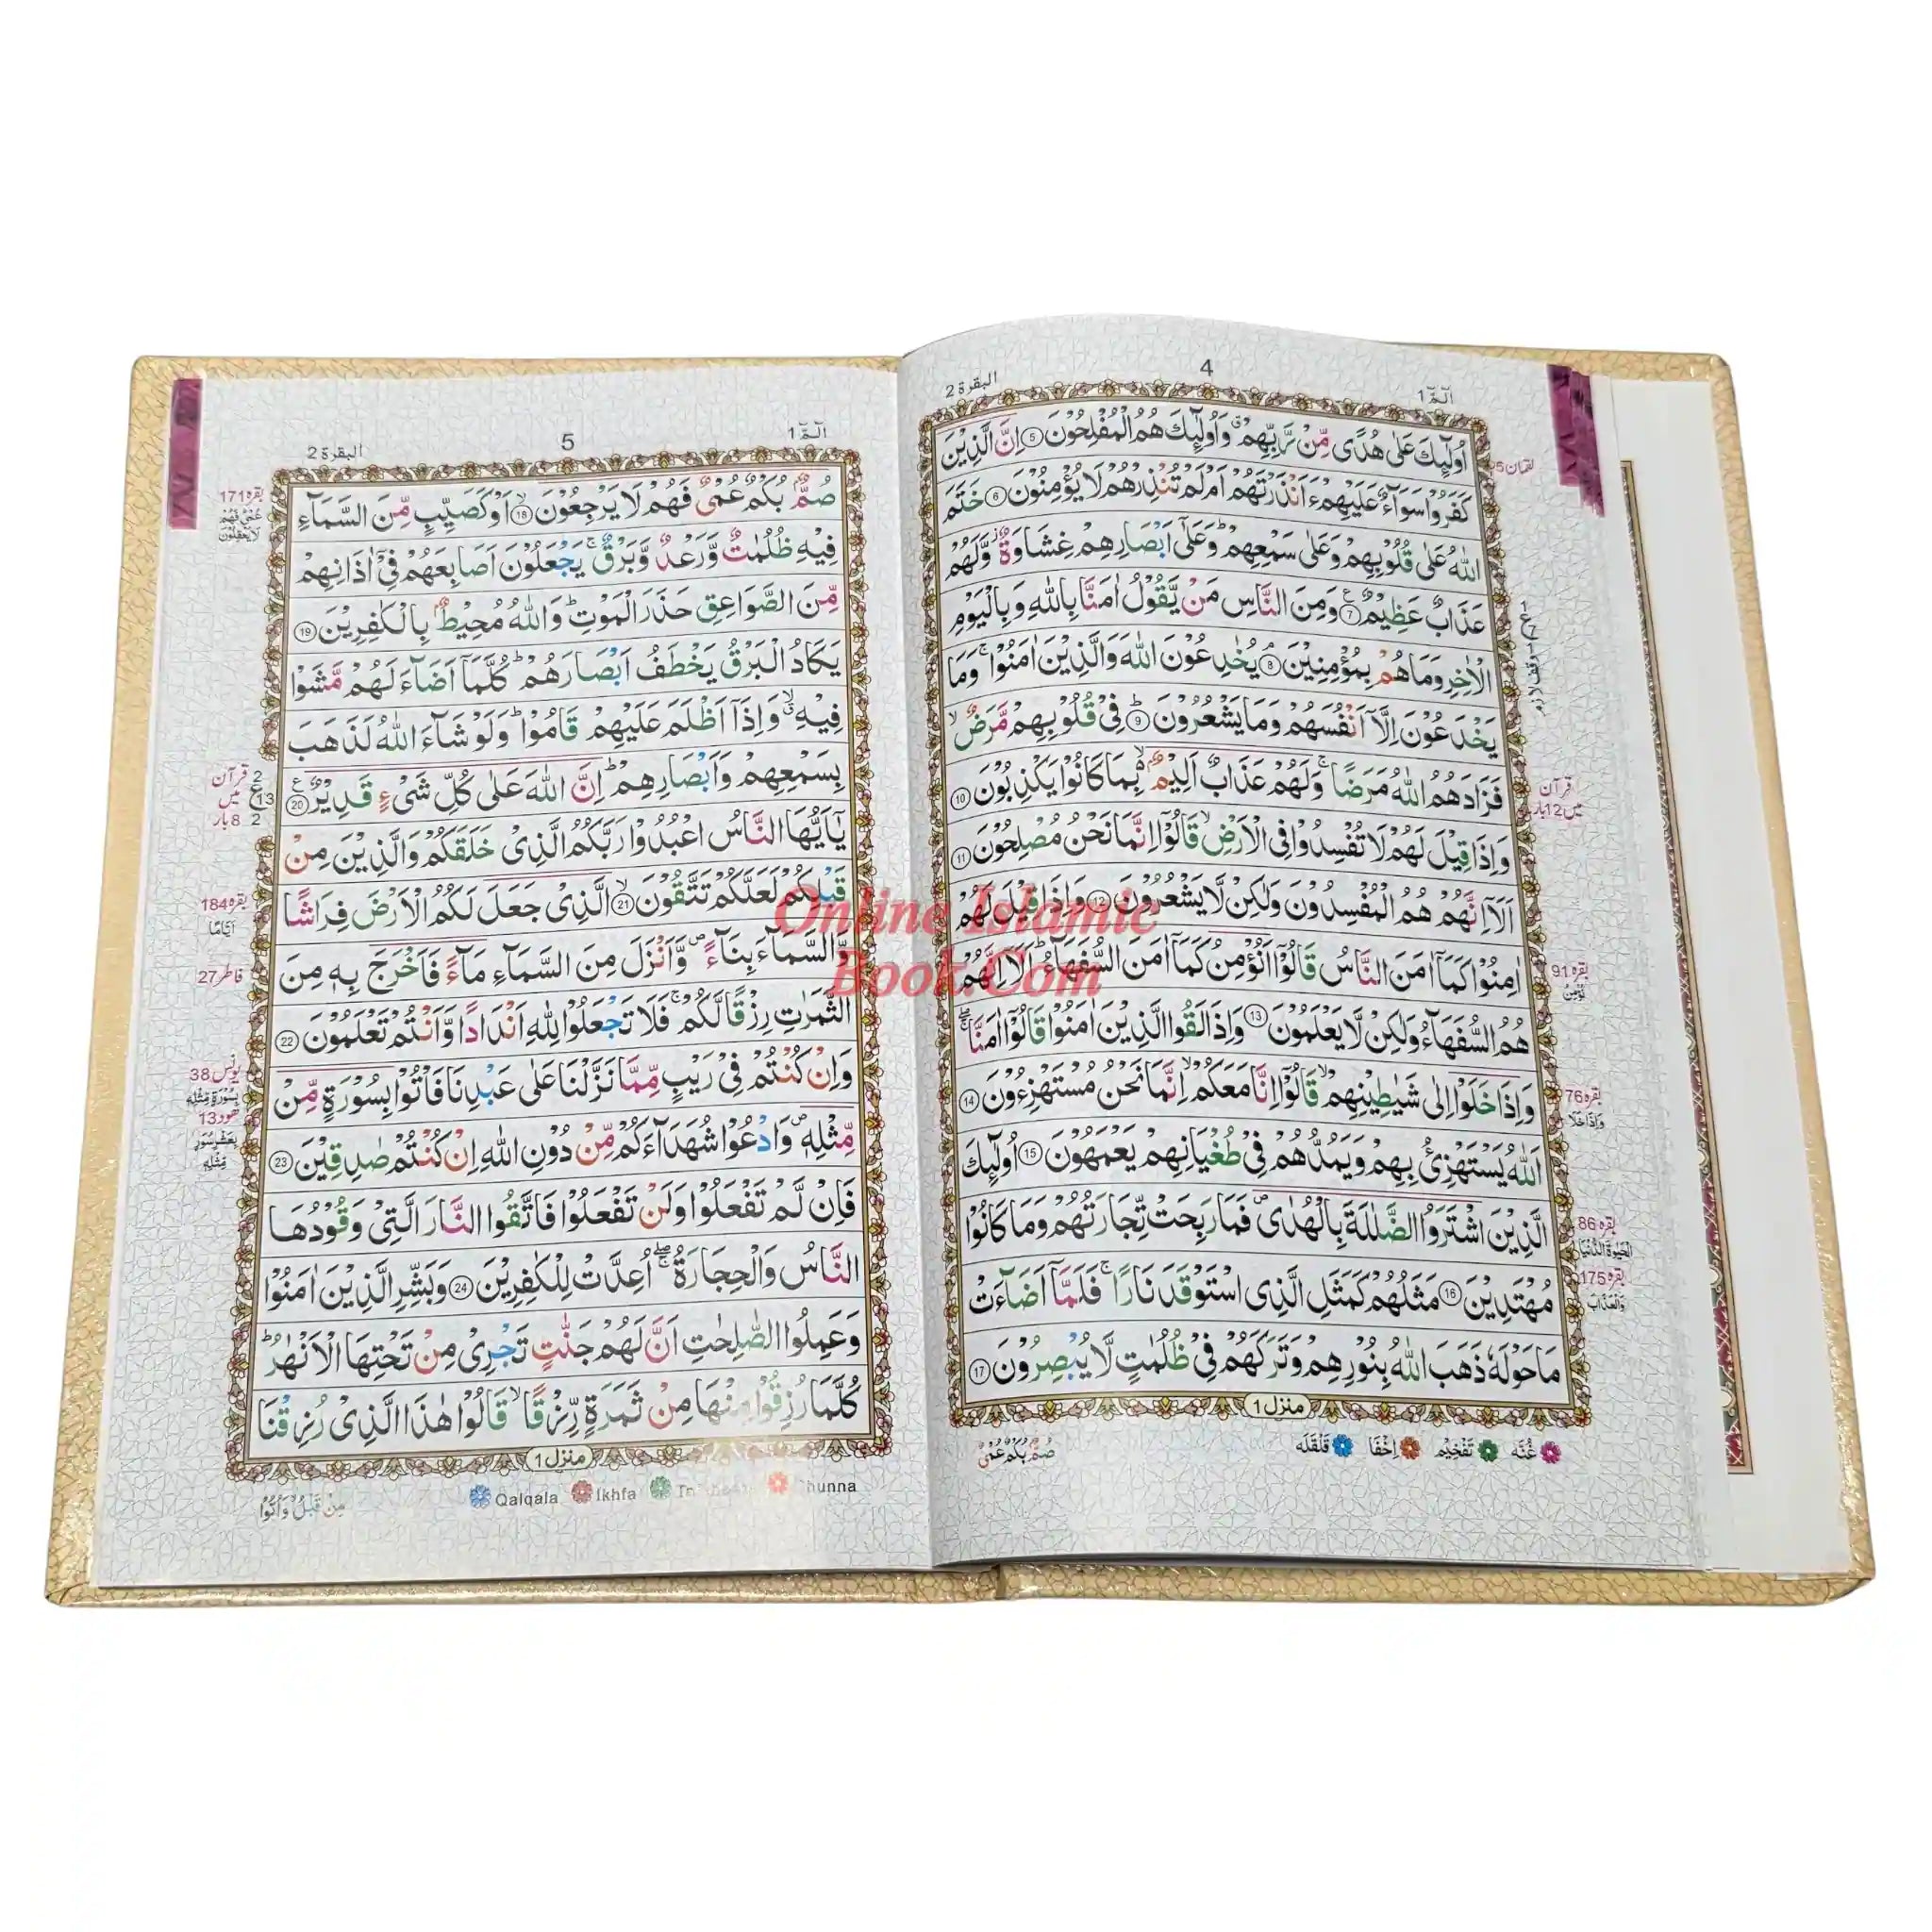 البقرة 2
4
الٓمّٓ 1
اُولٰٓئِكَ عَلٰى هُدًى مِّنْ رَّبِّهِمْ ۗ وَاُولٰٓئِكَ هُمُ الْمُفْلِحُوْنَ 5 اِنَّ الَّذِيْنَ
كَفَرُوْا سَوَآءٌ عَلَيْهِمْ ءَاَنْذَرْتَهُمْ اَمْ لَمْ تُنْذِرْهُمْ لَا يُؤْمِنُوْنَ 6 خَتَمَ
اللّٰهُ عَلٰى قُلُوْبِهِمْ وَعَلٰى سَمْعِهِمْ ؕ وَعَلٰٓى اَبْصَارِهِمْ غِشَاوَةٌ ز وَّلَهُمْ
عَذَابٌ عَظِيْمٌ 7 ع وَمِنَ النَّاسِ مَنْ يَّقُوْلُ اٰمَنَّا بِاللّٰهِ وَبِالْيَوْمِ
الْاٰخِرِ وَمَا هُمْ بِمُؤْمِنِيْنَ ۘ 8 يُخٰدِعُوْنَ اللّٰهَ وَالَّذِيْنَ اٰمَنُوْا ۚ وَمَا
يَخْدَعُوْنَ اِلَّآ اَنْفُسَهُمْ وَمَا يَشْعُرُوْنَ ؕ 9 فِيْ قُلُوْبِهِمْ مَّرَضٌ ۙ
فَزَادَهُمُ اللّٰهُ مَرَضًا ۚ وَلَهُمْ عَذَابٌ اَلِيْمٌۢ ۙ بِمَا كَانُوْا يَكْذِبُوْنَ 10
وَاِذَا قِيْلَ لَهُمْ لَا تُفْسِدُوْا فِى الْاَرْضِ ۙ قَالُوْٓا اِنَّمَا نَحْنُ مُصْلِحُوْنَ 11
اَلَآ اِنَّهُمْ هُمُ الْمُفْسِدُوْنَ وَلٰكِنْ لَّا يَشْعُرُوْنَ 12 وَاِذَا قِيْلَ لَهُمْ
اٰمِنُوْا كَمَآ اٰمَنَ النَّاسُ قَالُوْٓا اَنُؤْمِنُ كَمَآ اٰمَنَ السُّفَهَآءُ ؕ اَلَآ اِنَّهُمْ
هُمُ السُّفَهَآءُ وَلٰكِنْ لَّا يَعْلَمُوْنَ 13 وَاِذَا لَقُوا الَّذِيْنَ اٰمَنُوْا قَالُوْٓا اٰمَنَّا ۚۖ
وَاِذَا خَلَوْا اِلٰى شَيٰطِيْنِهِمْ ۙ قَالُوْٓا اِنَّا مَعَكُمْ ۙ اِنَّمَا نَحْنُ مُسْتَهْزِءُوْنَ 14
اَللّٰهُ يَسْتَهْزِئُ بِهِمْ وَيَمُدُّهُمْ فِيْ طُغْيَانِهِمْ يَعْمَهُوْنَ 15 اُولٰٓئِكَ
الَّذِيْنَ اشْتَرَوُا الضَّلٰلَةَ بِالْهُدٰى ۪ فَمَا رَبِحَتْ تِّجَارَتُهُمْ وَمَا كَانُوْا
مُهْتَدِيْنَ 16 مَثَلُهُمْ كَمَثَلِ الَّذِى اسْتَوْقَدَ نَارًا ۚ فَلَمَّآ اَضَآءَتْ
مَا حَوْلَهٗ ذَهَبَ اللّٰهُ بِنُوْرِهِمْ وَتَرَكَهُمْ فِيْ ظُلُمٰتٍ لَّا يُبْصِرُوْنَ 17
منزل 1
غُنَّه تَفْخِيْم اِخْفَا قَلْقَلَه
صُمٌّۢ بُكْمٌ عُمْىٌ
لقمان 5
وقف لازم
قرآن
میں 12 بار
بقره 91
نُؤْمِنُ
بقره 76
وَاِذَا خَلَا
بقره 86
الْحَيٰوةَ الدُّنْيَا
بقره 175
وَالْعَذَابَ
البقرة 2
5
الٓمّٓ 1
صُمٌّۢ بُكْمٌ عُمْىٌ فَهُمْ لَا يَرْجِعُوْنَ ۙ 18 اَوْ كَصَيِّبٍ مِّنَ السَّمَآءِ
فِيْهِ ظُلُمٰتٌ وَّرَعْدٌ وَّبَرْقٌ ۚ يَجْعَلُوْنَ اَصَابِعَهُمْ فِيْٓ اٰذَانِهِمْ
مِّنَ الصَّوَاعِقِ حَذَرَ الْمَوْتِ ؕ وَاللّٰهُ مُحِيْطٌۢ بِالْكٰفِرِيْنَ 19
يَكَادُ الْبَرْقُ يَخْطَفُ اَبْصَارَهُمْ ؕ كُلَّمَآ اَضَآءَ لَهُمْ مَّشَوْا
فِيْهِ ۙۗ وَاِذَآ اَظْلَمَ عَلَيْهِمْ قَامُوْا ؕ وَلَوْ شَآءَ اللّٰهُ لَذَهَبَ
بِسَمْعِهِمْ وَاَبْصَارِهِمْ ؕ اِنَّ اللّٰهَ عَلٰى كُلِّ شَىْءٍ قَدِيْرٌ 20 ع
يٰٓاَيُّهَا النَّاسُ اعْبُدُوْا رَبَّكُمُ الَّذِىْ خَلَقَكُمْ وَالَّذِيْنَ مِنْ
قَبْلِكُمْ لَعَلَّكُمْ تَتَّقُوْنَ ۙ 21 الَّذِىْ جَعَلَ لَكُمُ الْاَرْضَ فِرَاشًا
وَّالسَّمَآءَ بِنَآءً ۪ وَّاَنْزَلَ مِنَ السَّمَآءِ مَآءً فَاَخْرَجَ بِهٖ مِنَ
الثَّمَرٰتِ رِزْقًا لَّكُمْ ۚ فَلَا تَجْعَلُوْا لِلّٰهِ اَنْدَادًا وَّاَنْتُمْ تَعْلَمُوْنَ 22
وَاِنْ كُنْتُمْ فِيْ رَيْبٍ مِّمَّا نَزَّلْنَا عَلٰى عَبْدِنَا فَاْتُوْا بِسُوْرَةٍ مِّنْ
مِّثْلِهٖ ۪ وَادْعُوْا شُهَدَآءَكُمْ مِّنْ دُوْنِ اللّٰهِ اِنْ كُنْتُمْ صٰدِقِيْنَ 23
فَاِنْ لَّمْ تَفْعَلُوْا وَلَنْ تَفْعَلُوْا فَاتَّقُوا النَّارَ الَّتِىْ وَقُوْدُهَا
النَّاسُ وَالْحِجَارَةُ ۚۖ اُعِدَّتْ لِلْكٰفِرِيْنَ 24 وَبَشِّرِ الَّذِيْنَ اٰمَنُوْا
وَعَمِلُوا الصّٰلِحٰتِ اَنَّ لَهُمْ جَنّٰتٍ تَجْرِىْ مِنْ تَحْتِهَا الْاَنْهٰرُ ؕ
كُلَّمَا رُزِقُوْا مِنْهَا مِنْ ثَمَرَةٍ رِّزْقًا ۙ قَالُوْا هٰذَا الَّذِىْ رُزِقْنَا
منزل 1
Qalqala Ikhfa
مِنْ قَبْلُ ۙ وَاُتُوْا
بقره 171
عُمْىٌ فَهُمْ
لَا يَعْقِلُوْنَ
قرآن
میں
8 بار
2
ع
13
2
بقره 184
اَيَّامًا
فاطر 27
يونس 38
بِسُوْرَةٍ مِّثْلِهٖ
هود 13
بِعَشْرِ سُوَرٍ
مِّثْلِهٖ
Online Islamic
Book.Com